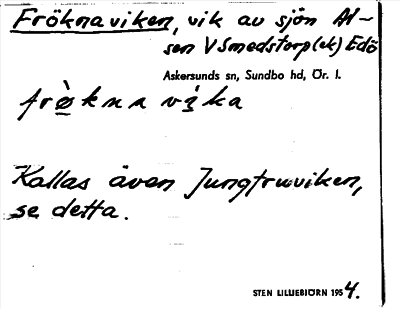 Fröknaviken, vik av sjön Al-
sen V Smedstorp(ek) Edö
Askersunds sn, Sundbo hd, Ör. l.
frø̀kna vı̀ka
Kallas även Jungfruviken,
se detta.
STEN LILLIEBJÖRN 1954.